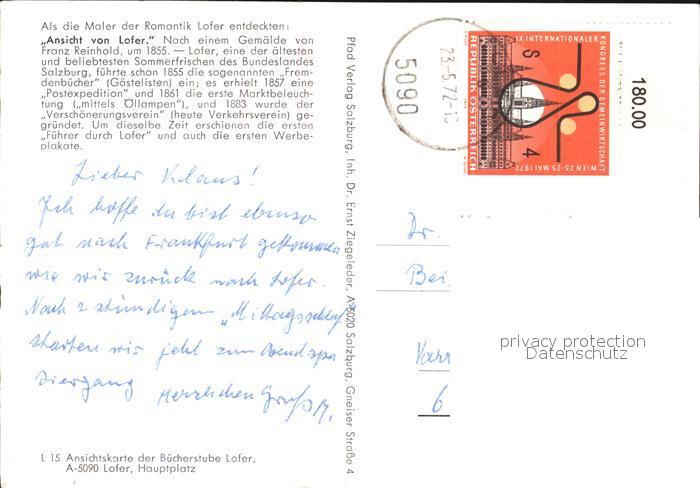 Als die Maler der Romantik Lofer entdeckten:
„Ansicht von Lofer.” Nach einem Gemälde von
Franz Reinhold, um 1855. — Lofer, eine der ältesten
und beliebtesten Sommerfrischen des Bundeslandes
Salzburg, führte schon 1855 die sogenannten „Frem-
denbücher” (Gästelisten) ein; es erhielt 1857 eine
„Postexpedition” und 1861 die erste Marktbeleuch-
tung („mittels Öllampen”), und 1883 wurde der
„Verschönerungsverein” (heute Verkehrsverein) ge-
gründet. Um dieselbe Zeit erschienen die ersten
„Führer durch Lofer” und auch die ersten Werbe-
plakate.
Lieber Klaus!
Ich hoffe du bist ebenso
gut nach Frankfurt gekommen
wie wir zurück nach Lofer.
Nach 2 stündigem „Mittagsschlaf”
starten wir jetzt zum Abendspa
ziergang Herzlichen Gruß M.
L 15 Ansichtskarte der Bücherstube Lofer,
A-5090 Lofer, Hauptplatz
Pfad Verlag Salzburg, Inh. Dr. Ernst Ziegeleder, A-5020 Salzburg, Gneiser Straße 4
23.-5.72-18
5090
IX. INTERNATIONALER
KONGRESS DER GEMEINWIRTSCHAFT
WIEN 23-25. MAI 1972
REPUBLIK ÖSTERREICH
S 4
180.00
Dr.
Bei
Varr
6
privacy protection
Datenschutz